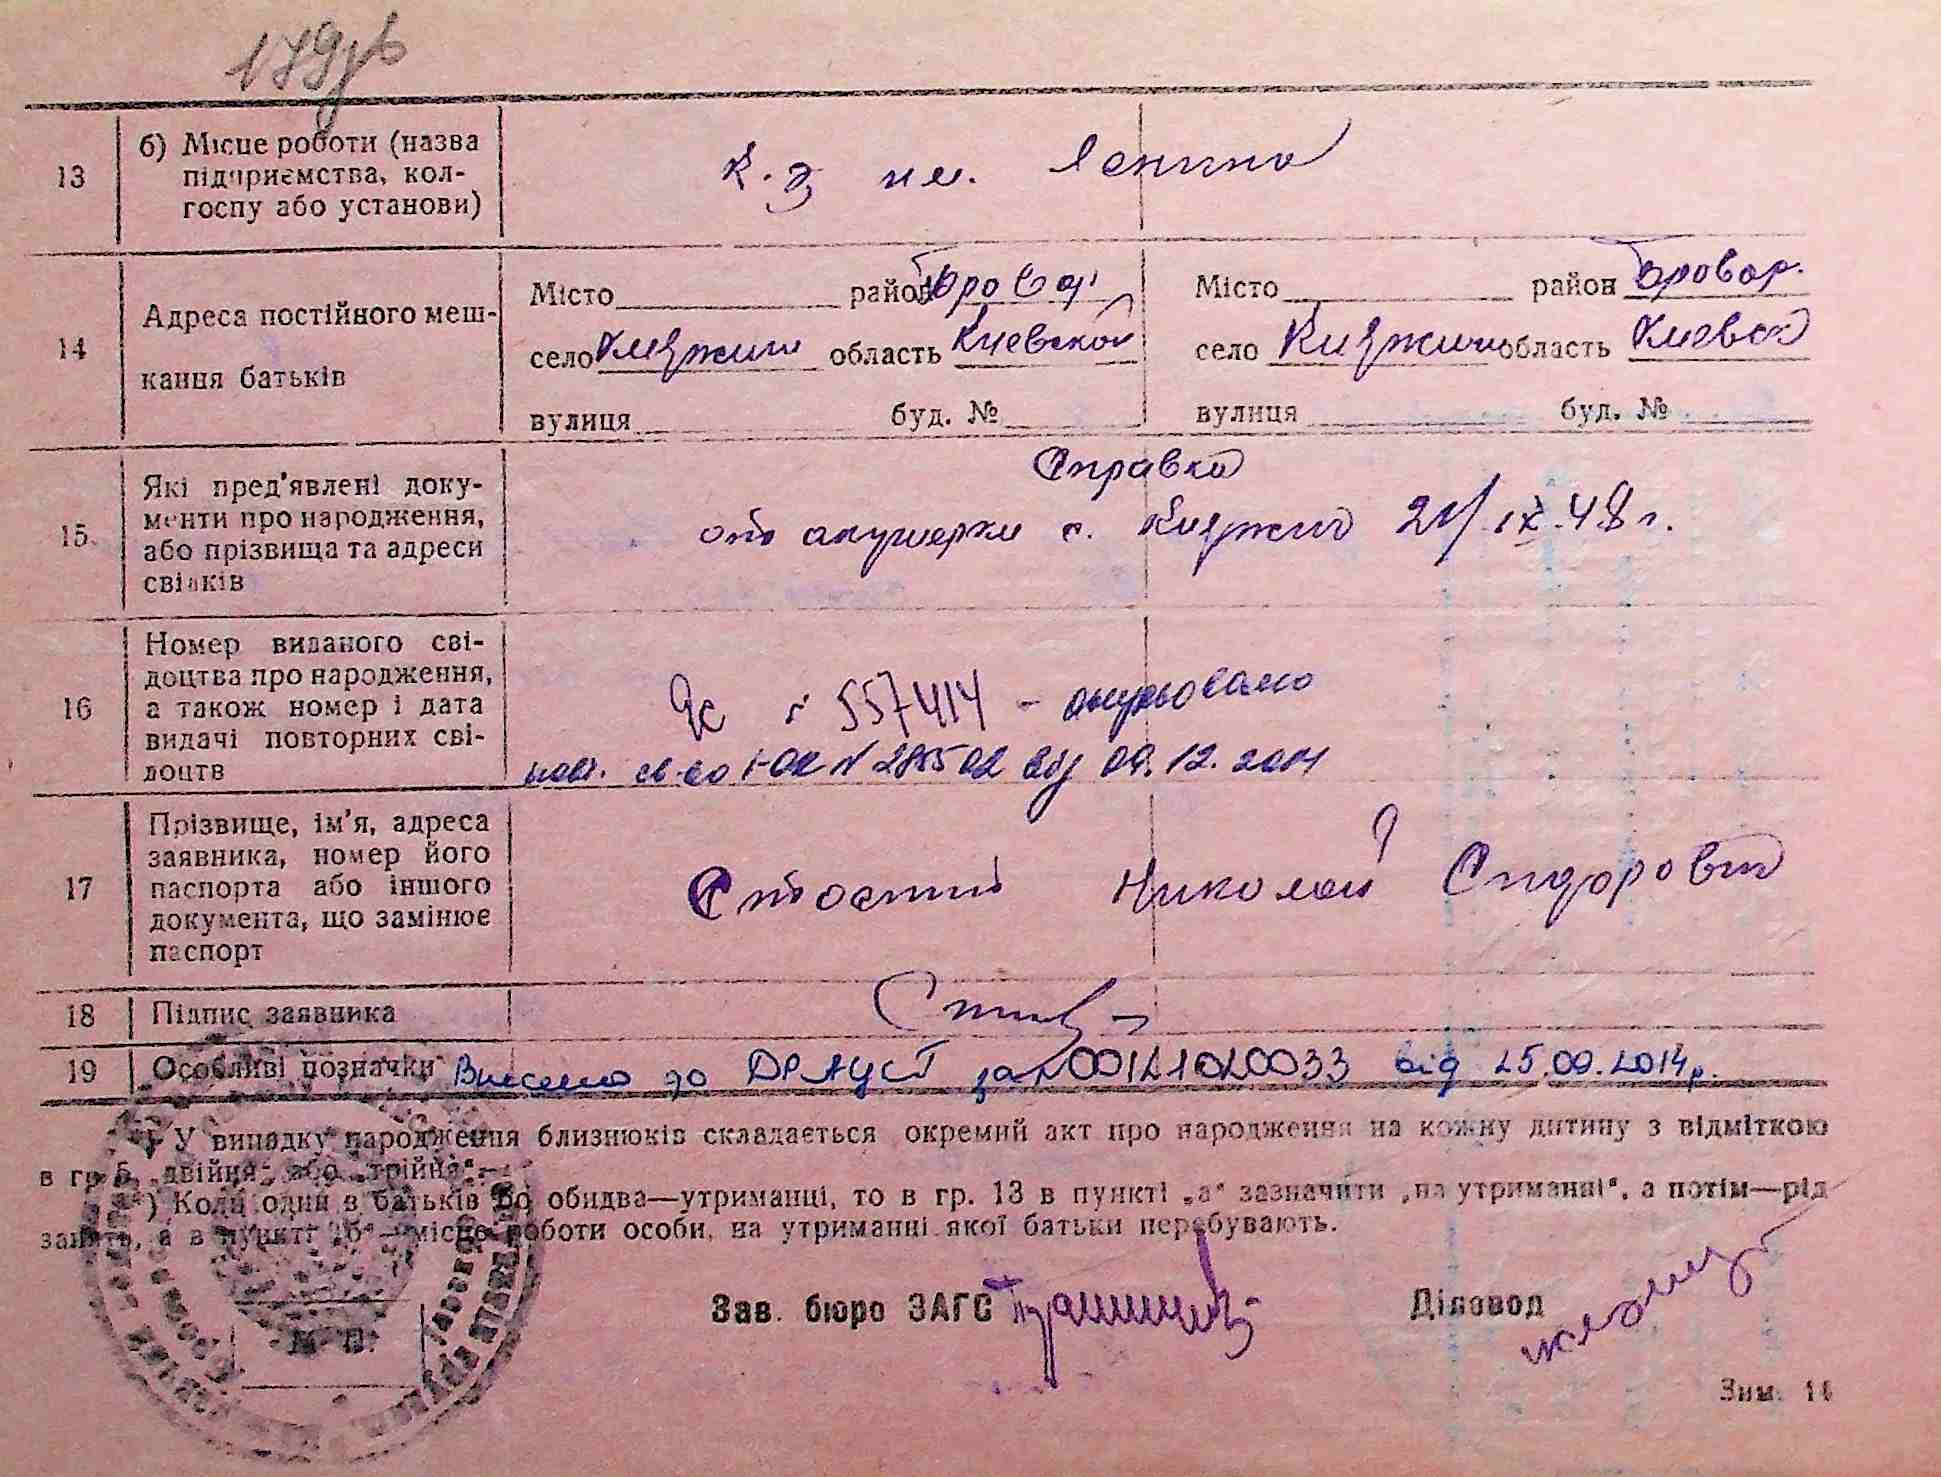 179
13
б) Місце роботи (назва
підприємства, кол-
госпу або установи)
к.з им. Ленина
14
Адреса постійного меш-
кання батьків
Місто район Бровар.
село Княжичи область Киевской
вулиця буд. №
Місто район Бровар.
село Княжичи область Киевской
вулиця буд. №
15
Які пред'явлені доку-
менти про народження,
або прізвища та адреси
свідків
Справка
от акушерки с. Княжичи IX.48 г.
16
Номер виданого сві-
доцтва про народження,
а також номер і дата
видачі повторних сві-
доцтв
№ 557414 - анульовано
повт. св-во 1-ОК № від 09.12.2014
17
Прізвище, ім'я, адреса
заявника, номер його
паспорта або іншого
документа, що замінює
паспорт
Николай Сидорович
18
Підпис заявника
19
Особливі позначки Внесено до ДРАЦСГ за № 00121020033 від 25.09.2014р.
*) У випадку народження близнюків складається окремий акт про народження на кожну дитину з відміткою
в гр. 5 „двійня" або „трійня".—
**) Коли один з батьків або обидва—утриманці, то в гр. 13 в пункті „а" зазначити „на утриманні", а потім—рід
занять, а в пункті „б"—місце роботи особи, на утриманні якої батьки перебувають.
Зав. бюро ЗАГС
Діловод
М. П.